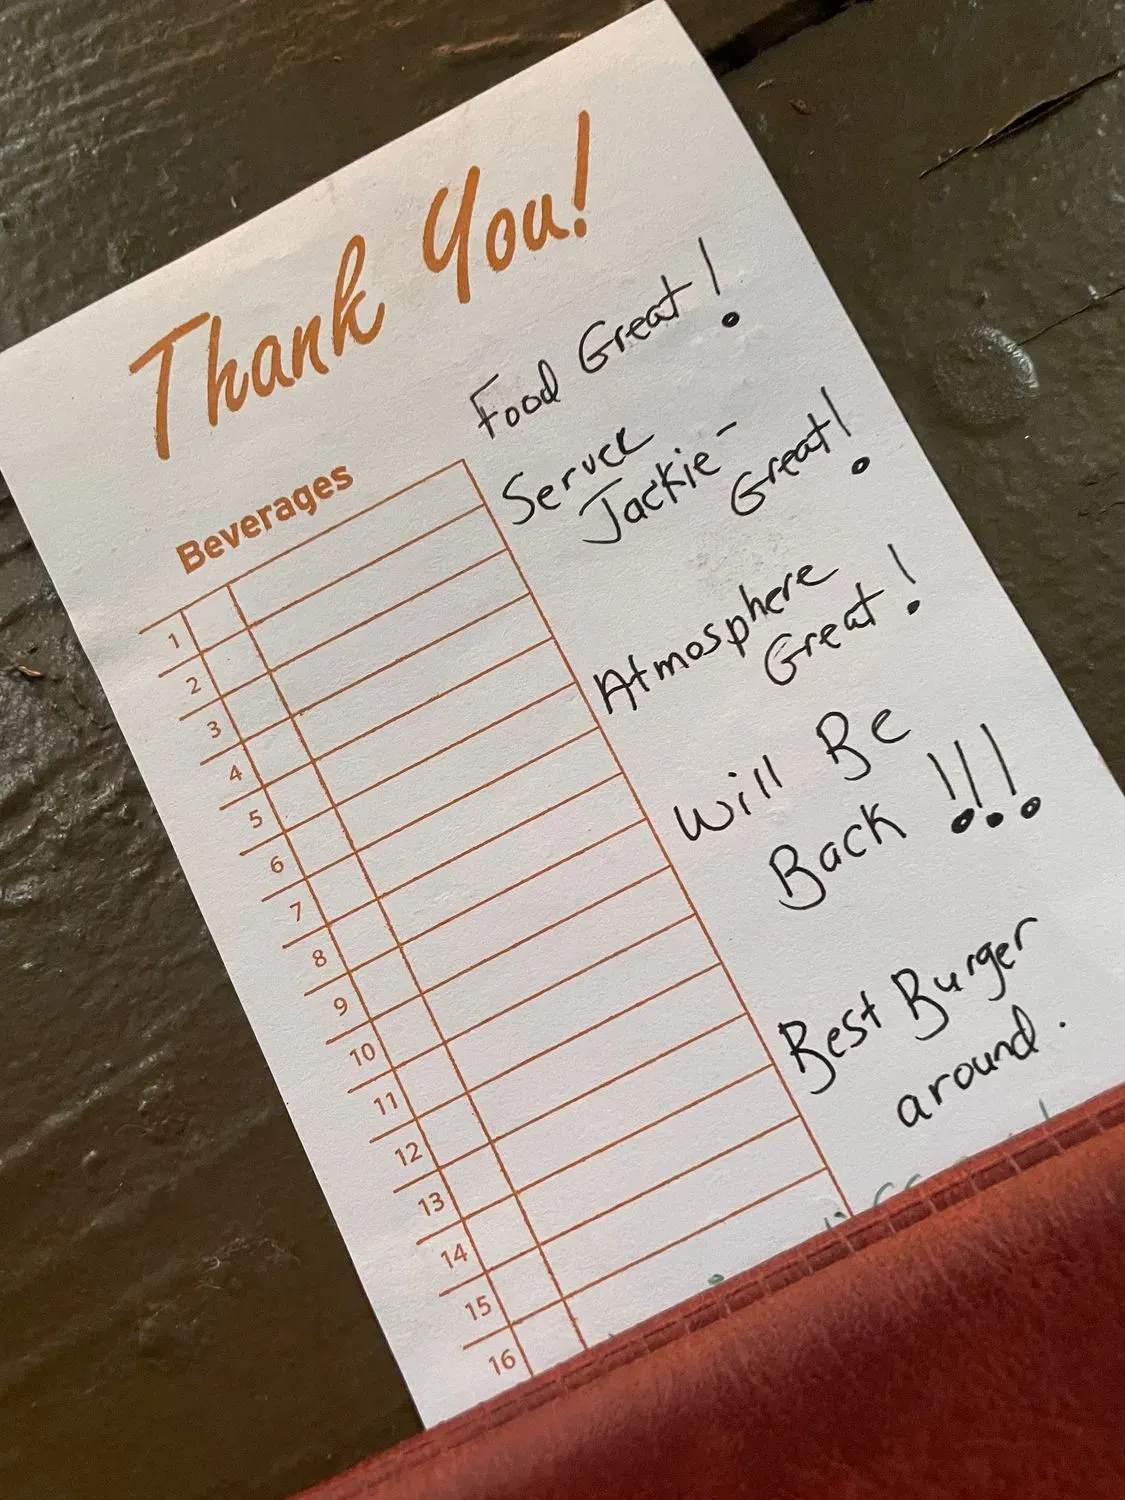 Thank You!
Food Great!
Service
Jackie -
Great!
Atmosphere
Great!
Will Be
Back !!!
Best Burger
around.
Beverages
1
2
3
4
5
6
7
8
9
10
11
12
13
14
15
16